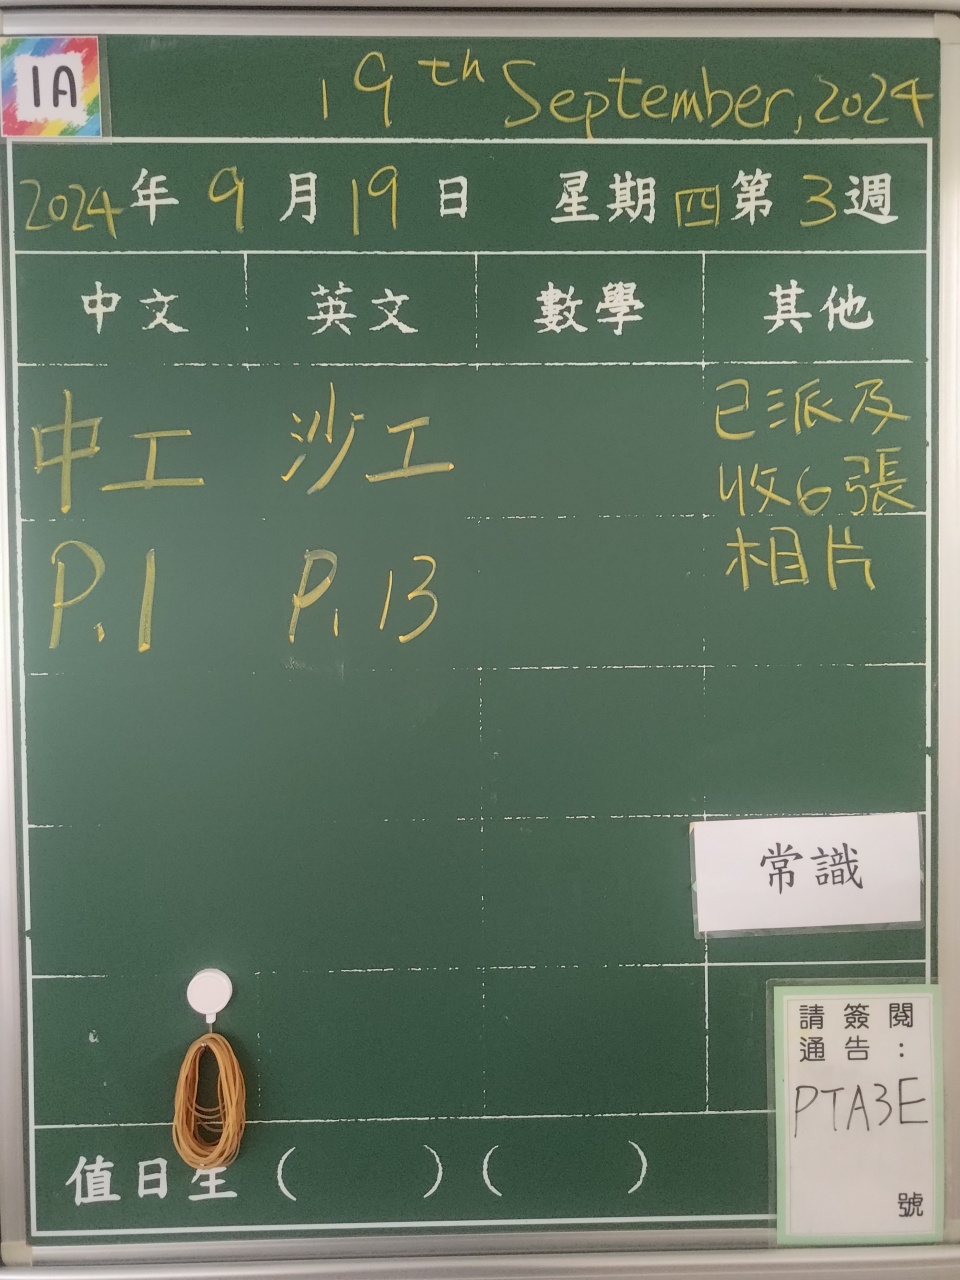 1A
19th September, 2024
2024年9月19日 星期四第3週
中文 英文 數學 其他
中工 沙工 已派及
收6張
P.1 P.13 相片
常識
請簽閱
通告：
PTA3E
號
值日生（ ）（ ）